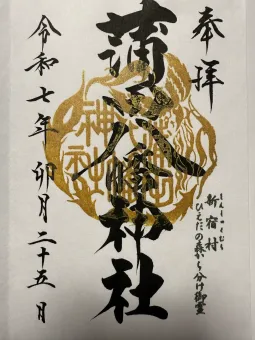 奉拝
しんしゅくむら
新宿村
ひえだの森から分け御霊
蒲田八幡神社
令和七年 卯月二十五日